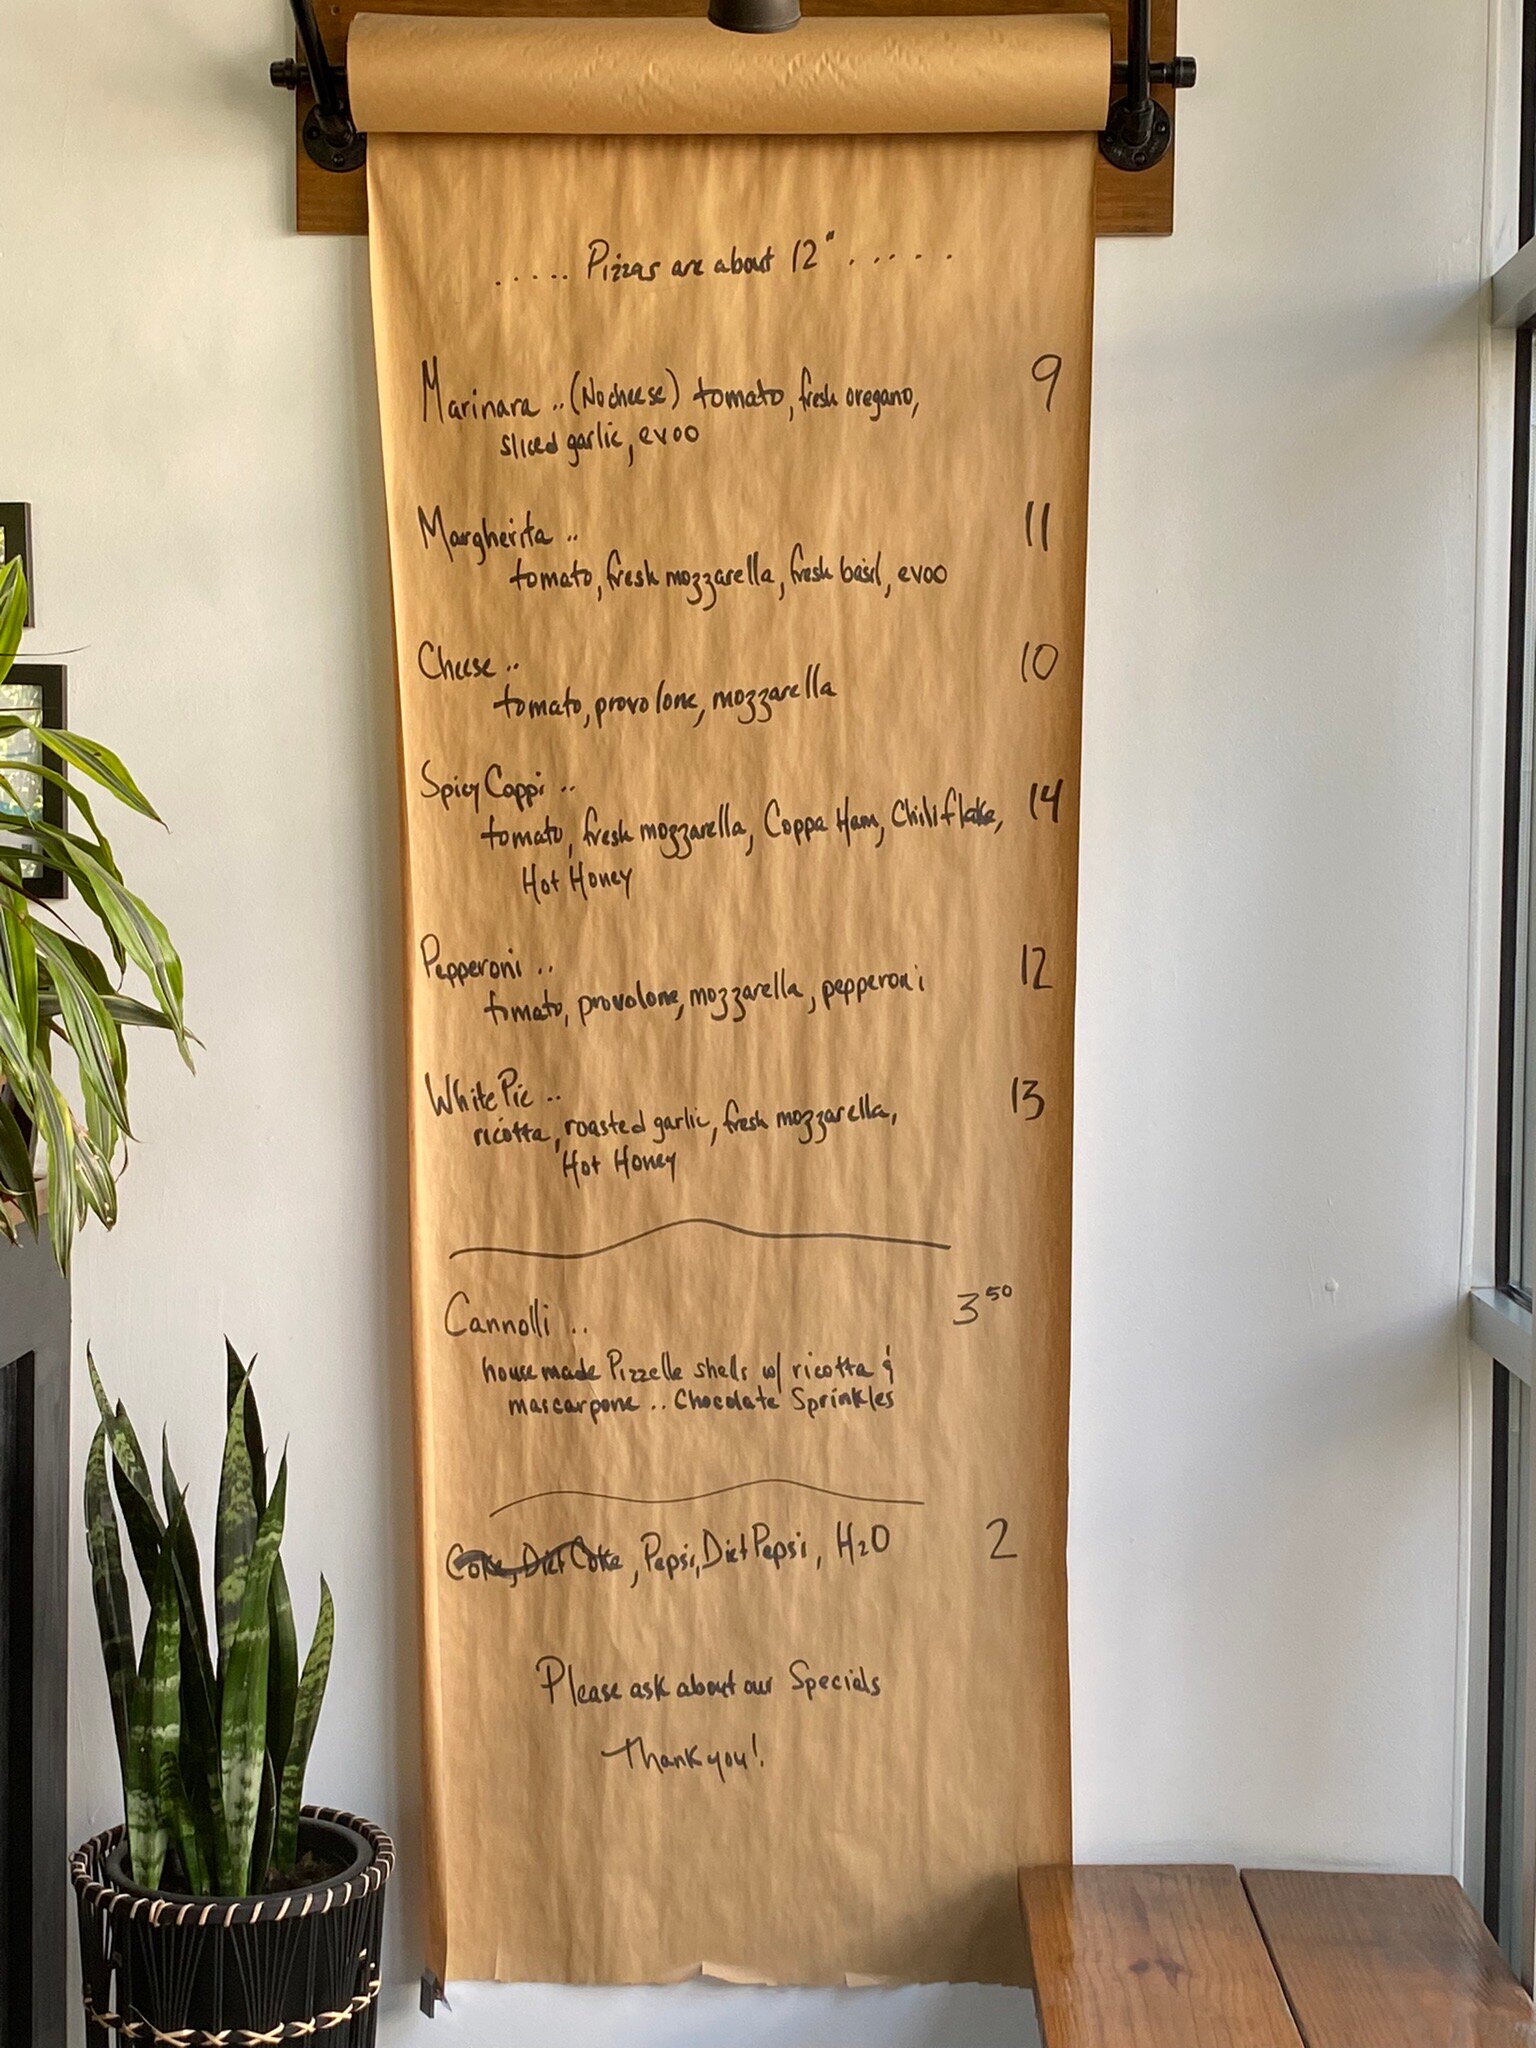 ..... Pizzas are about 12" .....
Marinara .. (No cheese) tomato, fresh oregano, 9
sliced garlic, evoo
Margherita .. 11
tomato, fresh mozzarella, fresh basil, evoo
Cheese .. 10
tomato, provolone, mozzarella
Spicy Coppi .. 
tomato, fresh mozzarella, Coppa Ham, Chili flake, 14
Hot Honey
Pepperoni .. 12
tomato, provolone, mozzarella, pepperoni
White Pie .. 13
ricotta, roasted garlic, fresh mozzarella,
Hot Honey
Cannolli .. 3 50
house made Pizzelle shells w/ ricotta &
mascarpone .. Chocolate Sprinkles
Coke, Diet Coke, Pepsi, Diet Pepsi, H2O 2
Please ask about our Specials
Thank you!